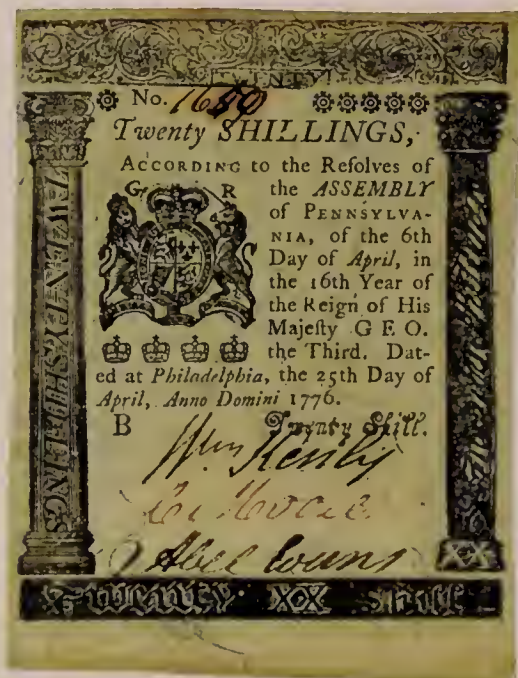 TWENTY
No. 1689
Twenty SHILLINGS,
ACCORDING to the Reſolves of
G R
the ASSEMBLY
of PENNSYLVA-
NIA, of the 6th
Day of April, in
the 16th Year of
the Reign of His
Majeſty GEO.
the Third. Dat-
ed at Philadelphia, the 25th Day of
April, Anno Domini 1776.
B Twenty Shill.
Wm Kenly
Abel Evans
TWENTY SHILLINGS
XX
TWENTY XX SHILL